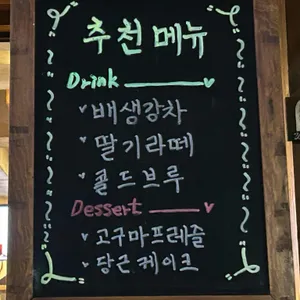 추천메뉴
Drink
배생강차
딸기라떼
콜드브루
Dessert
고구마프레즐
당근케이크